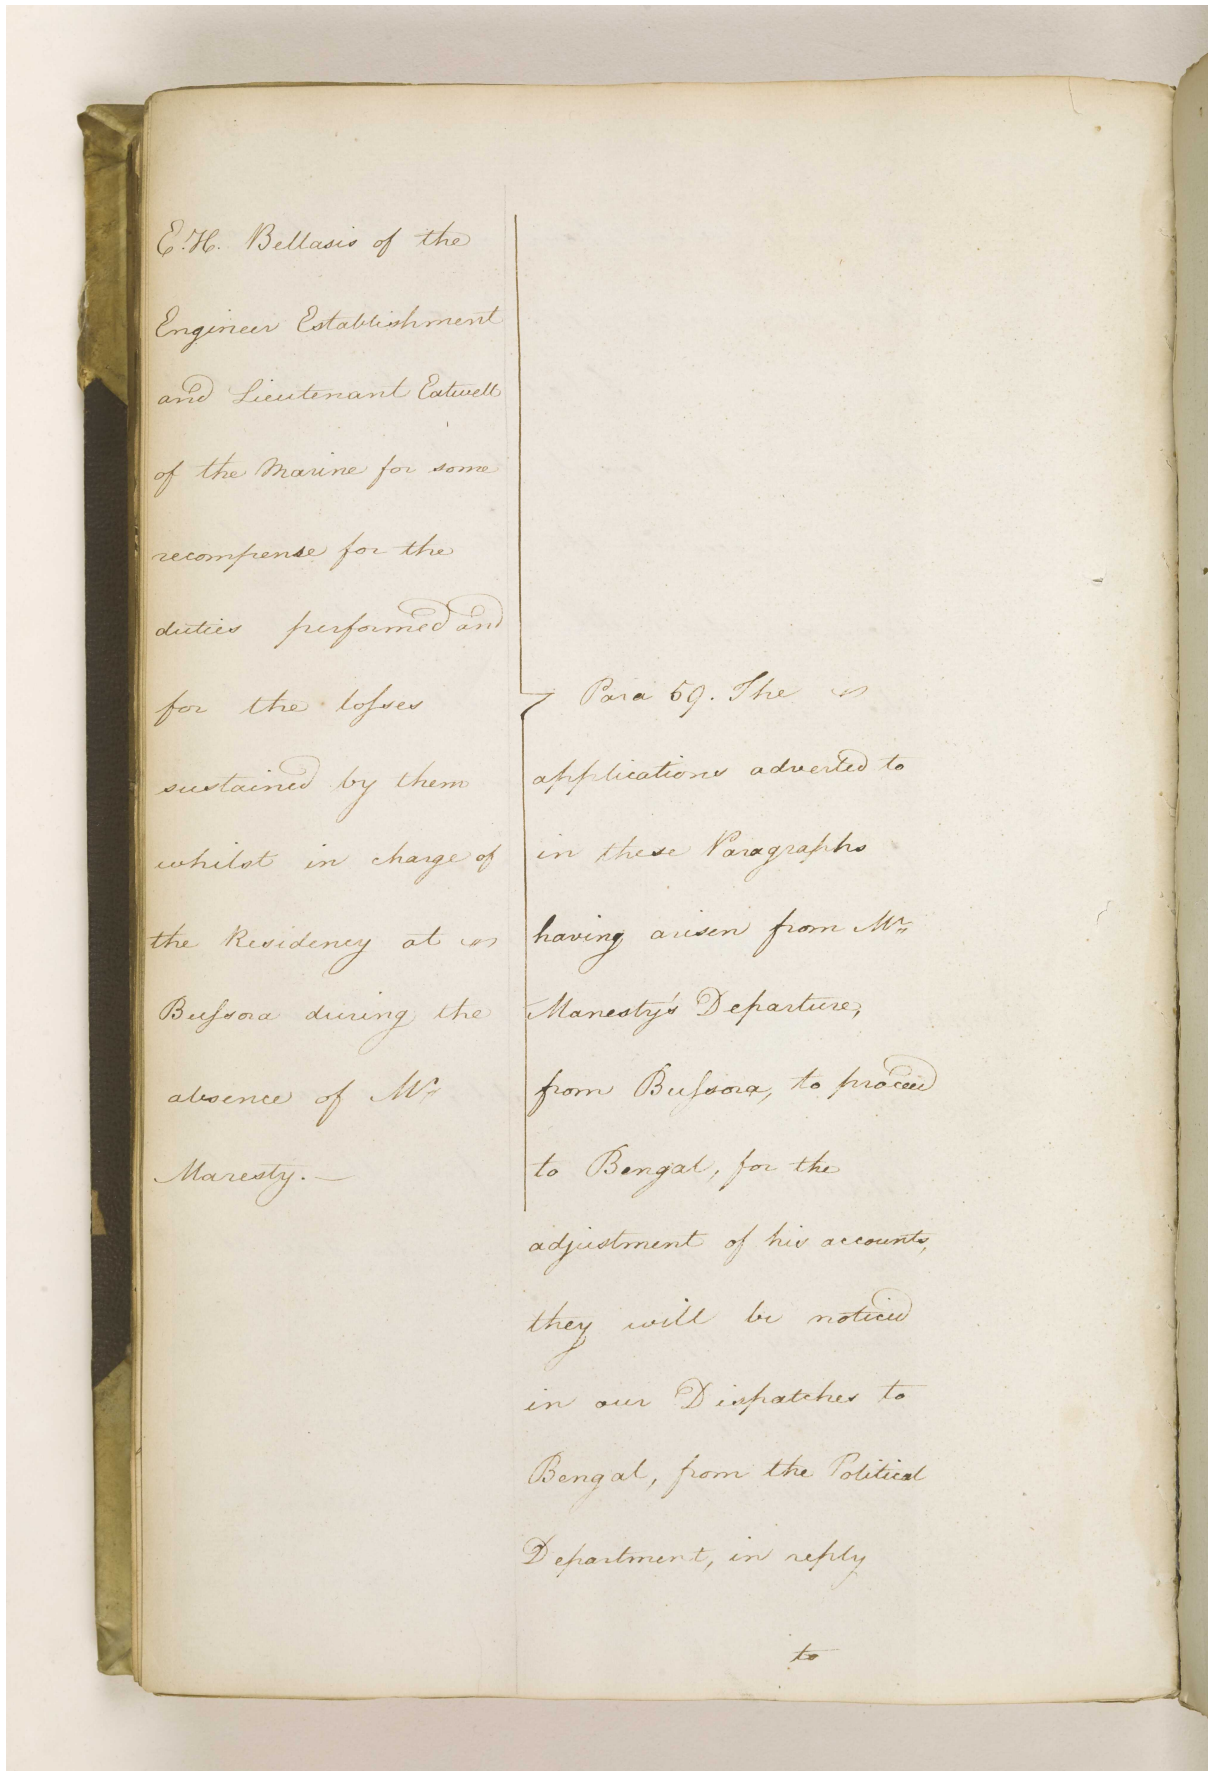 E. H. Bellasis of the
Engineer Establishment
and Lieutenant Eatwell
of the Marine for some
recompense for the
duties performed and
for the loſses
sustained by them
whilst in charge of
the Residency at
Buſsora during the
absence of Mr
Manesty. —
Para 59. The
applications adverted to
in these Paragraphs
having arisen from Mr
Manesty's Departure,
from Buſsora, to proceed
to Bengal, for the
adjustment of his accounts,
they will be noticed
in our Dispatches to
Bengal, from the Political
Department, in reply
to